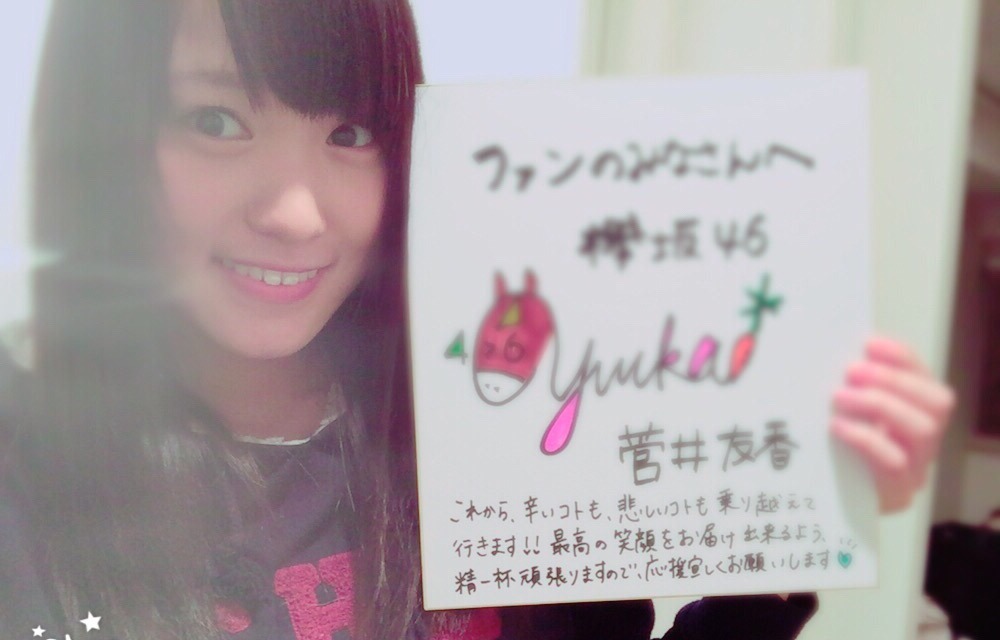 ファンのみなさんへ
欅坂46
yuuka
菅井友香
これから、辛いコトも、悲しいコトも乗り越えて
行きます!!最高の笑顔をお届け出来るよう、
精一杯頑張りますので、応援宜しくお願いします
H